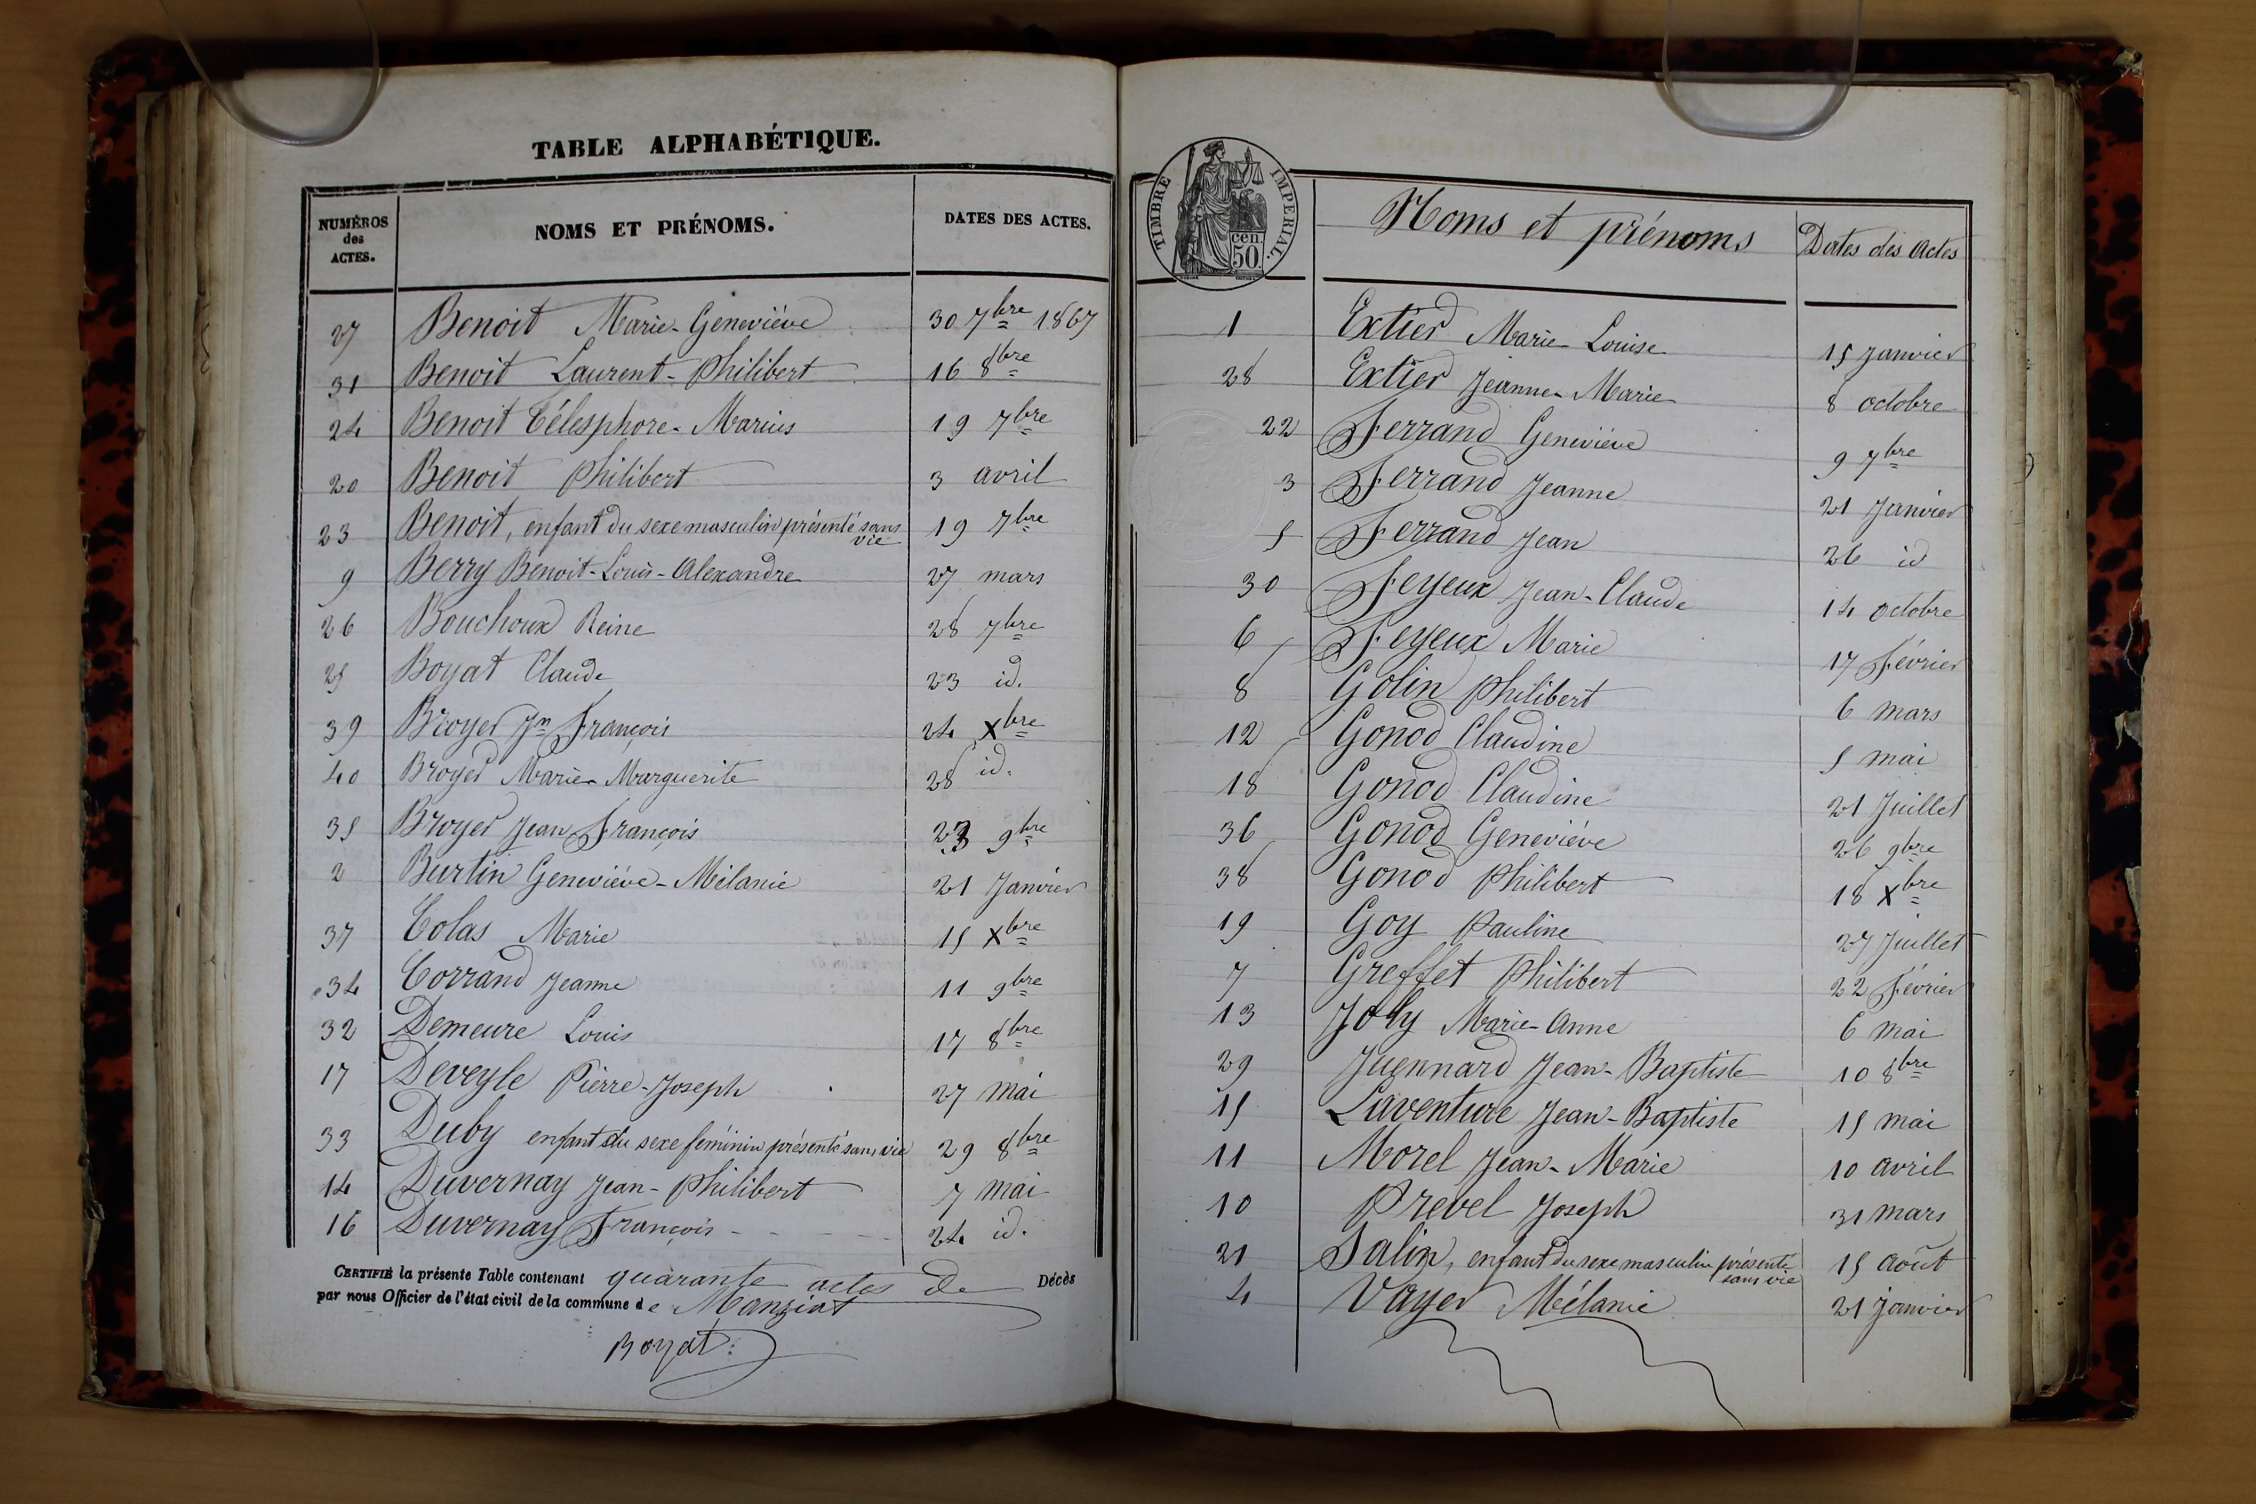 TABLE ALPHABÉTIQUE.
NUMÉROS des ACTES. NOMS ET PRÉNOMS. DATES DES ACTES.
27 Benoit Marie-Geneviève 30 7bre 1867
31 Benoit Laurent-Philibert 16 8bre
24 Benoit Télesphore-Marius 19 7bre
20 Benoit Philibert 3 avril
23 Benoit, enfant du sexe masculin présenté sans vie 19 7bre
9 Berry Benoit-Louis-Alexandre 27 mars
26 Bouchoux Reine 28 7bre
25 Boyat Claude 23 id.
39 Broyer Jn François 24 Xbre
40 Broyer Marie-Marguerite 28 id.
35 Broyer Jean François 23 9bre
2 Burtin Geneviève-Mélanie 21 Janvier
37 Colas Marie 15 Xbre
34 Corrand Jeanne 11 9bre
32 Demeure Louis 17 8bre
17 Deveyle Pierre-Joseph 27 mai
33 Duby enfant du sexe féminin présenté sans vie 29 8bre
14 Duvernay Jean-Philibert 7 mai
16 Duvernay François 24 id.
CERTIFIÉ la présente Table contenant quarante actes de Décès
par nous Officier de l'état civil de la commune de Manziat
Boyat
TIMBRE IMPERIAL.
50 cen.
Noms et prénoms Dates des Actes
1 Extier Marie-Louise 15 Janvier
28 Extier Jeanne-Marie 8 octobre
22 Ferrand Geneviève 9 7bre
3 Ferrand Jeanne 21 Janvier
5 Ferrand Jean 26 id
30 Feyeux Jean-Claude 14 octobre
6 Feyeux Marie 17 Février
8 Golin Philibert 6 mars
12 Gonod Claudine 5 mai
18 Gonod Claudine 21 Juillet
36 Gonod Geneviève 26 9bre
38 Gonod Philibert 18 Xbre
19 Goy Pauline 27 Juillet
7 Greffet Philibert 22 Février
13 Joly Marie-Anne 6 mai
29 Jugnnard Jean-Baptiste 10 8bre
15 Laventure Jean-Baptiste 15 mai
11 Morel Jean-Marie 10 avril
10 Prevel Joseph 31 mars
21 Salin, enfant du sexe masculin présenté sans vie 15 août
4 Vayer Mélanie 21 janvier